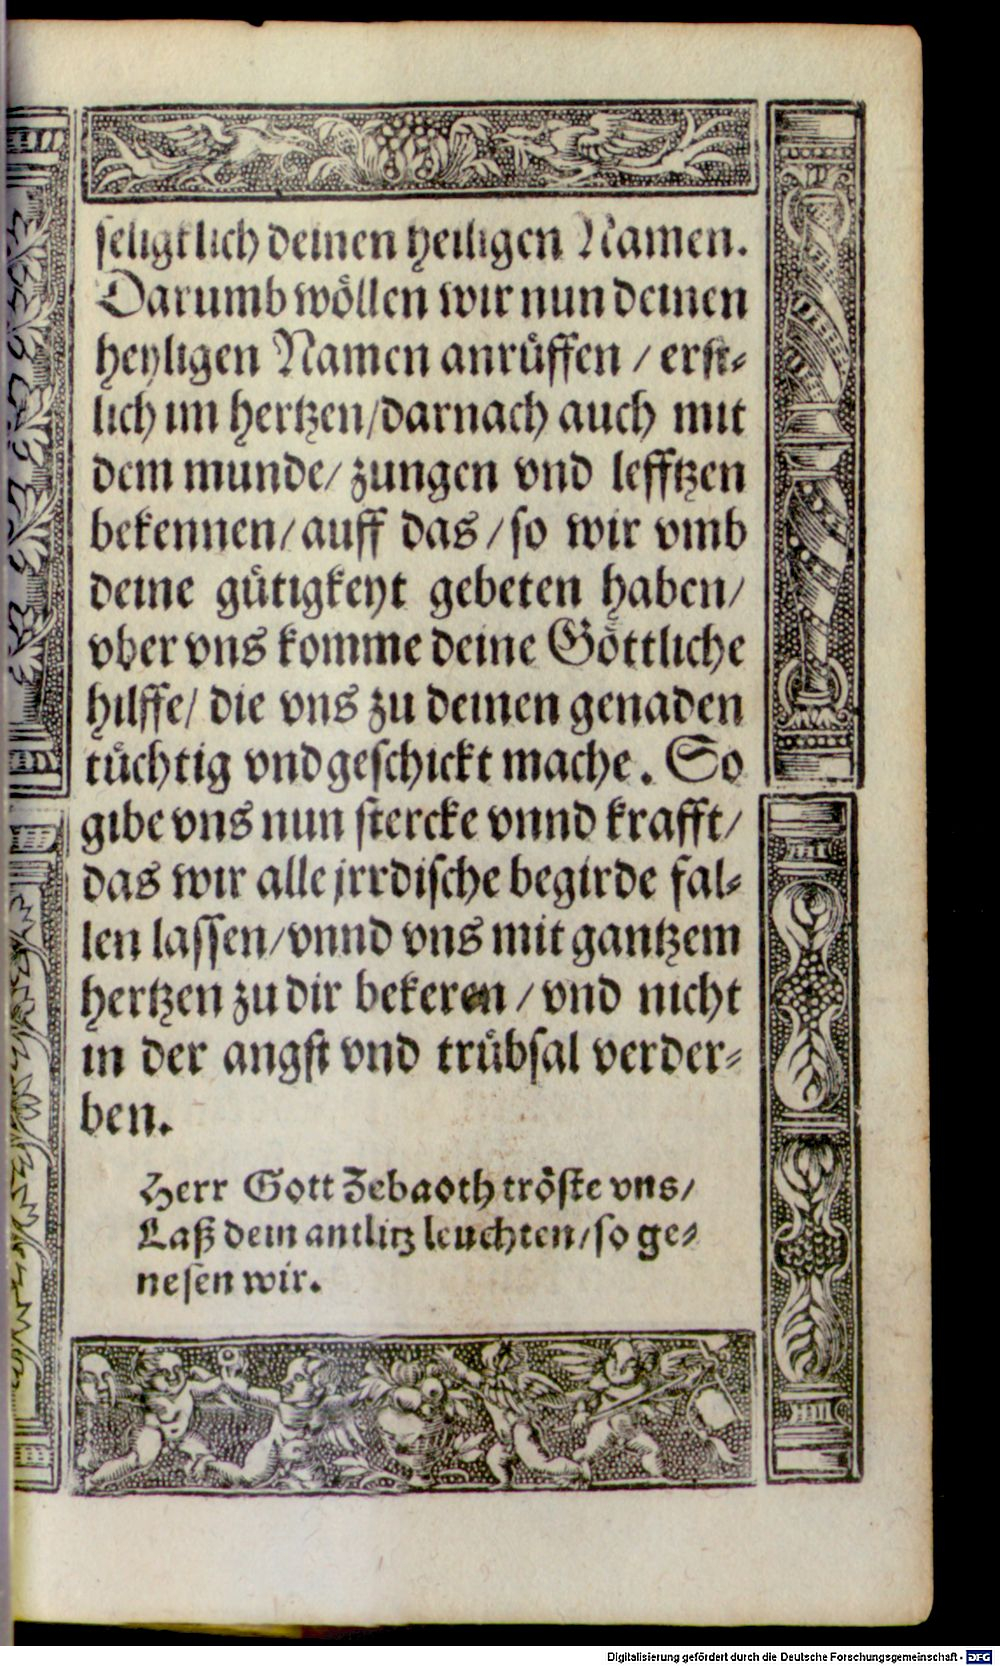 seligklich deinen heiligen Namen.
Darumb wöllen wir nun deinen
heyligen Namen anrůffen / erst⸗
lich im hertzen/darnach auch mit
dem munde/ zungen vnd lefftzen
bekennen/ auff das / so wir vmb
deine gütigkeyt gebeten haben/
vber vns komme deine Göttliche
hilffe/ die vns zu deinen genaden
tüchtig vnd geschickt mache. So
gibe vns nun stercke vnnd krafft/
das wir alle jrrdische begirde fal⸗
len lassen/vnnd vns mit gantzem
hertzen zu dir bekeren / vnd nicht
in der angst vnd trübsal verder⸗
ben.
Herr Gott Zebaoth tröste vns/
Laß dein antlitz leuchten/so ge⸗
nesen wir.
Digitalisierung gefördert durch die Deutsche Forschungsgemeinschaft - DFG